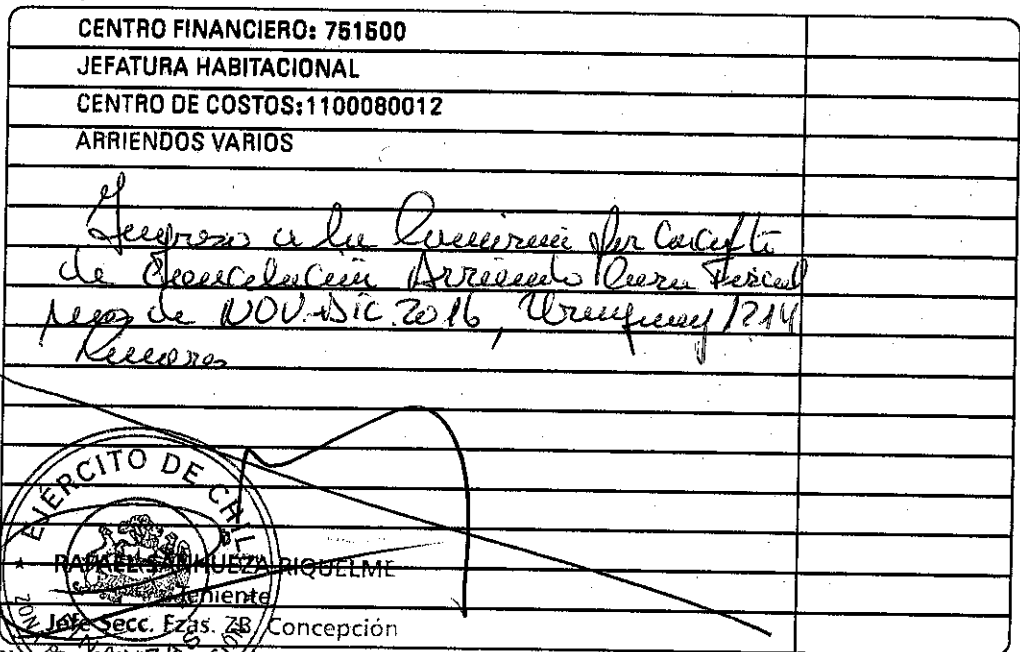 CENTRO FINANCIERO: 751500
JEFATURA HABITACIONAL
CENTRO DE COSTOS:1100080012
ARRIENDOS VARIOS
Ingreso a la por Concepto
de Cancelación Arriendo Casa Fiscal
mes de NOV.-DIC. 2016, Uruguay 1214
Linares
EJÉRCITO DE CHILE
RAFAEL SANHUEZA RIQUELME
Teniente
Jefe Secc. Fzas. ZB. Concepción